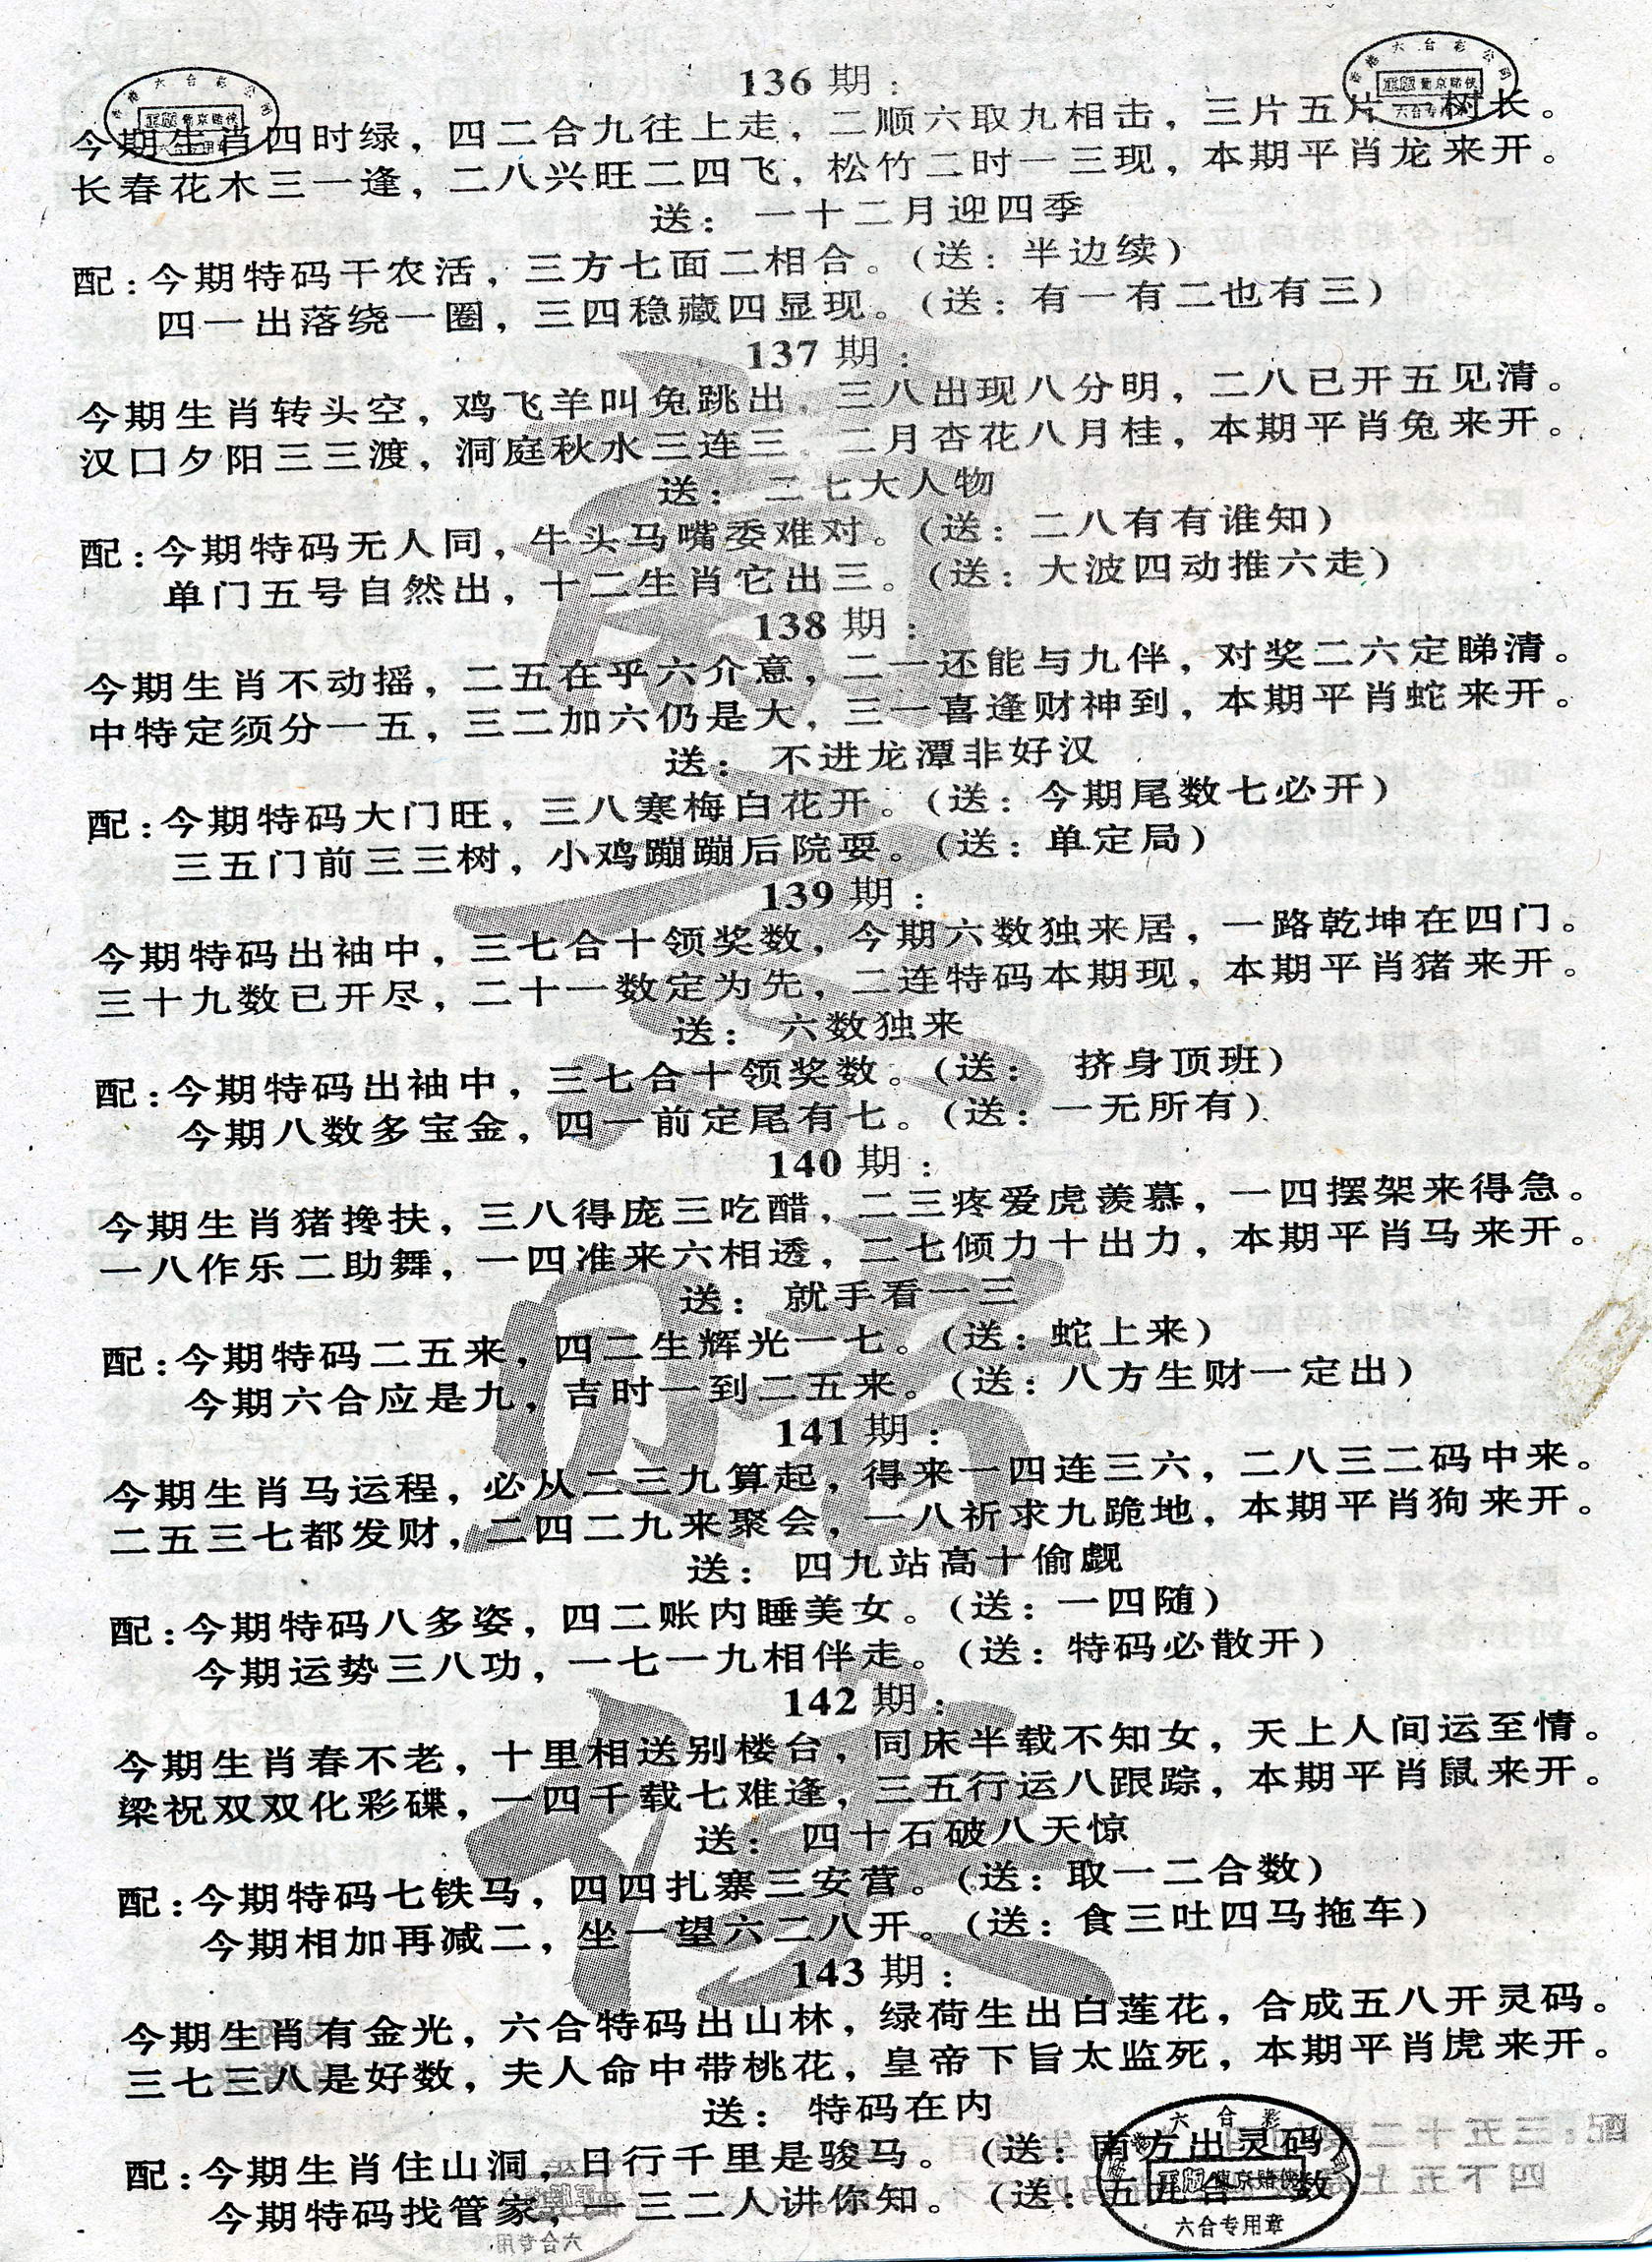 136 期：
今期生肖四时绿，四二合九往上走，二顺六取九相击，三片五片一树长。
长春花木三一逢，二八兴旺二四飞，松竹二时一三现，本期平肖龙来开。
送： 一十二月迎四季
配：今期特码干农活，三方七面二相合。（送：半边续）
四一出落绕一圈，三四稳藏四显现。（送：有一有二也有三）
137 期：
今期生肖转头空，鸡飞羊叫兔跳出，三八出现八分明，二八已开五见清。
汉口夕阳三三渡，洞庭秋水三连三，二月杏花八月桂，本期平肖兔来开。
送： 二七大人物
配：今期特码无人同，牛头马嘴委难对。（送：二八有有谁知）
单门五号自然出，十二生肖它出三。（送：大波四动推六走）
138 期：
今期生肖不动摇，二五在乎六介意，二一还能与九伴，对奖二六定睇清。
中特定须分一五，三二加六仍是大，三一喜逢财神到，本期平肖蛇来开。
送： 不进龙潭非好汉
配：今期特码大门旺，三八寒梅白花开。（送：今期尾数七必开）
三五门前三三树，小鸡蹦蹦后院耍。（送：单定局）
139 期：
今期特码出袖中，三七合十领奖数，今期六数独来居，一路乾坤在四门。
三十九数已开尽，二十一数定为先，二连特码本期现，本期平肖猪来开。
送： 六数独来
配：今期特码出袖中，三七合十领奖数。（送： 挤身顶班）
今期八数多宝金，四一前定尾有七。（送：一无所有）
140 期：
今期生肖猪搀扶，三八得庞三吃醋，二三疼爱虎羡慕，一四摆架来得急。
一八作乐二助舞，一四准来六相透，二七倾力十出力，本期平肖马来开。
送： 就手看一三
配：今期特码二五来，四二生辉光一七。（送：蛇上来）
今期六合应是九，吉时一到二五来。（送：八方生财一定出）
141 期：
今期生肖马运程，必从二三九算起，得来一四连三六，二八三二码中来。
二五三七都发财，二四二九来聚会，一八祈求九跪地，本期平肖狗来开。
送： 四九站高十偷觑
配：今期特码八多姿，四二账内睡美女。（送：一四随）
今期运势三八功，一七一九相伴走。（送：特码必散开）
142 期：
今期生肖春不老，十里相送别楼台，同床半载不知女，天上人间运至情。
梁祝双双化彩碟，一四千载七难逢，三五行运八跟踪，本期平肖鼠来开。
送： 四十石破八天惊
配：今期特码七铁马，四四扎寨三安营。（送：取一二合数）
今期相加再减二，坐一望六二八开。（送：食三吐四马拖车）
143 期：
今期生肖有金光，六合特码出山林，绿荷生出白莲花，合成五八开灵码。
三七三八是好数，夫人命中带桃花，皇帝下旨太监死，本期平肖虎来开。
送： 特码在内
配：今期生肖住山洞，日行千里是骏马。（送：南方出灵码）
今期特码找管家，一三二人讲你知。（送：五五合一数
六合专用章